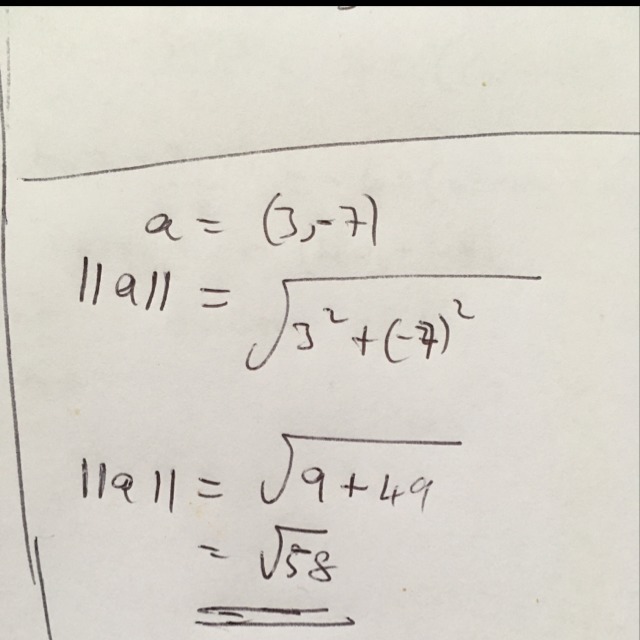 a = (3,-7)
||a|| = √3² + (-7)²
||a|| = √9 + 49
= √58